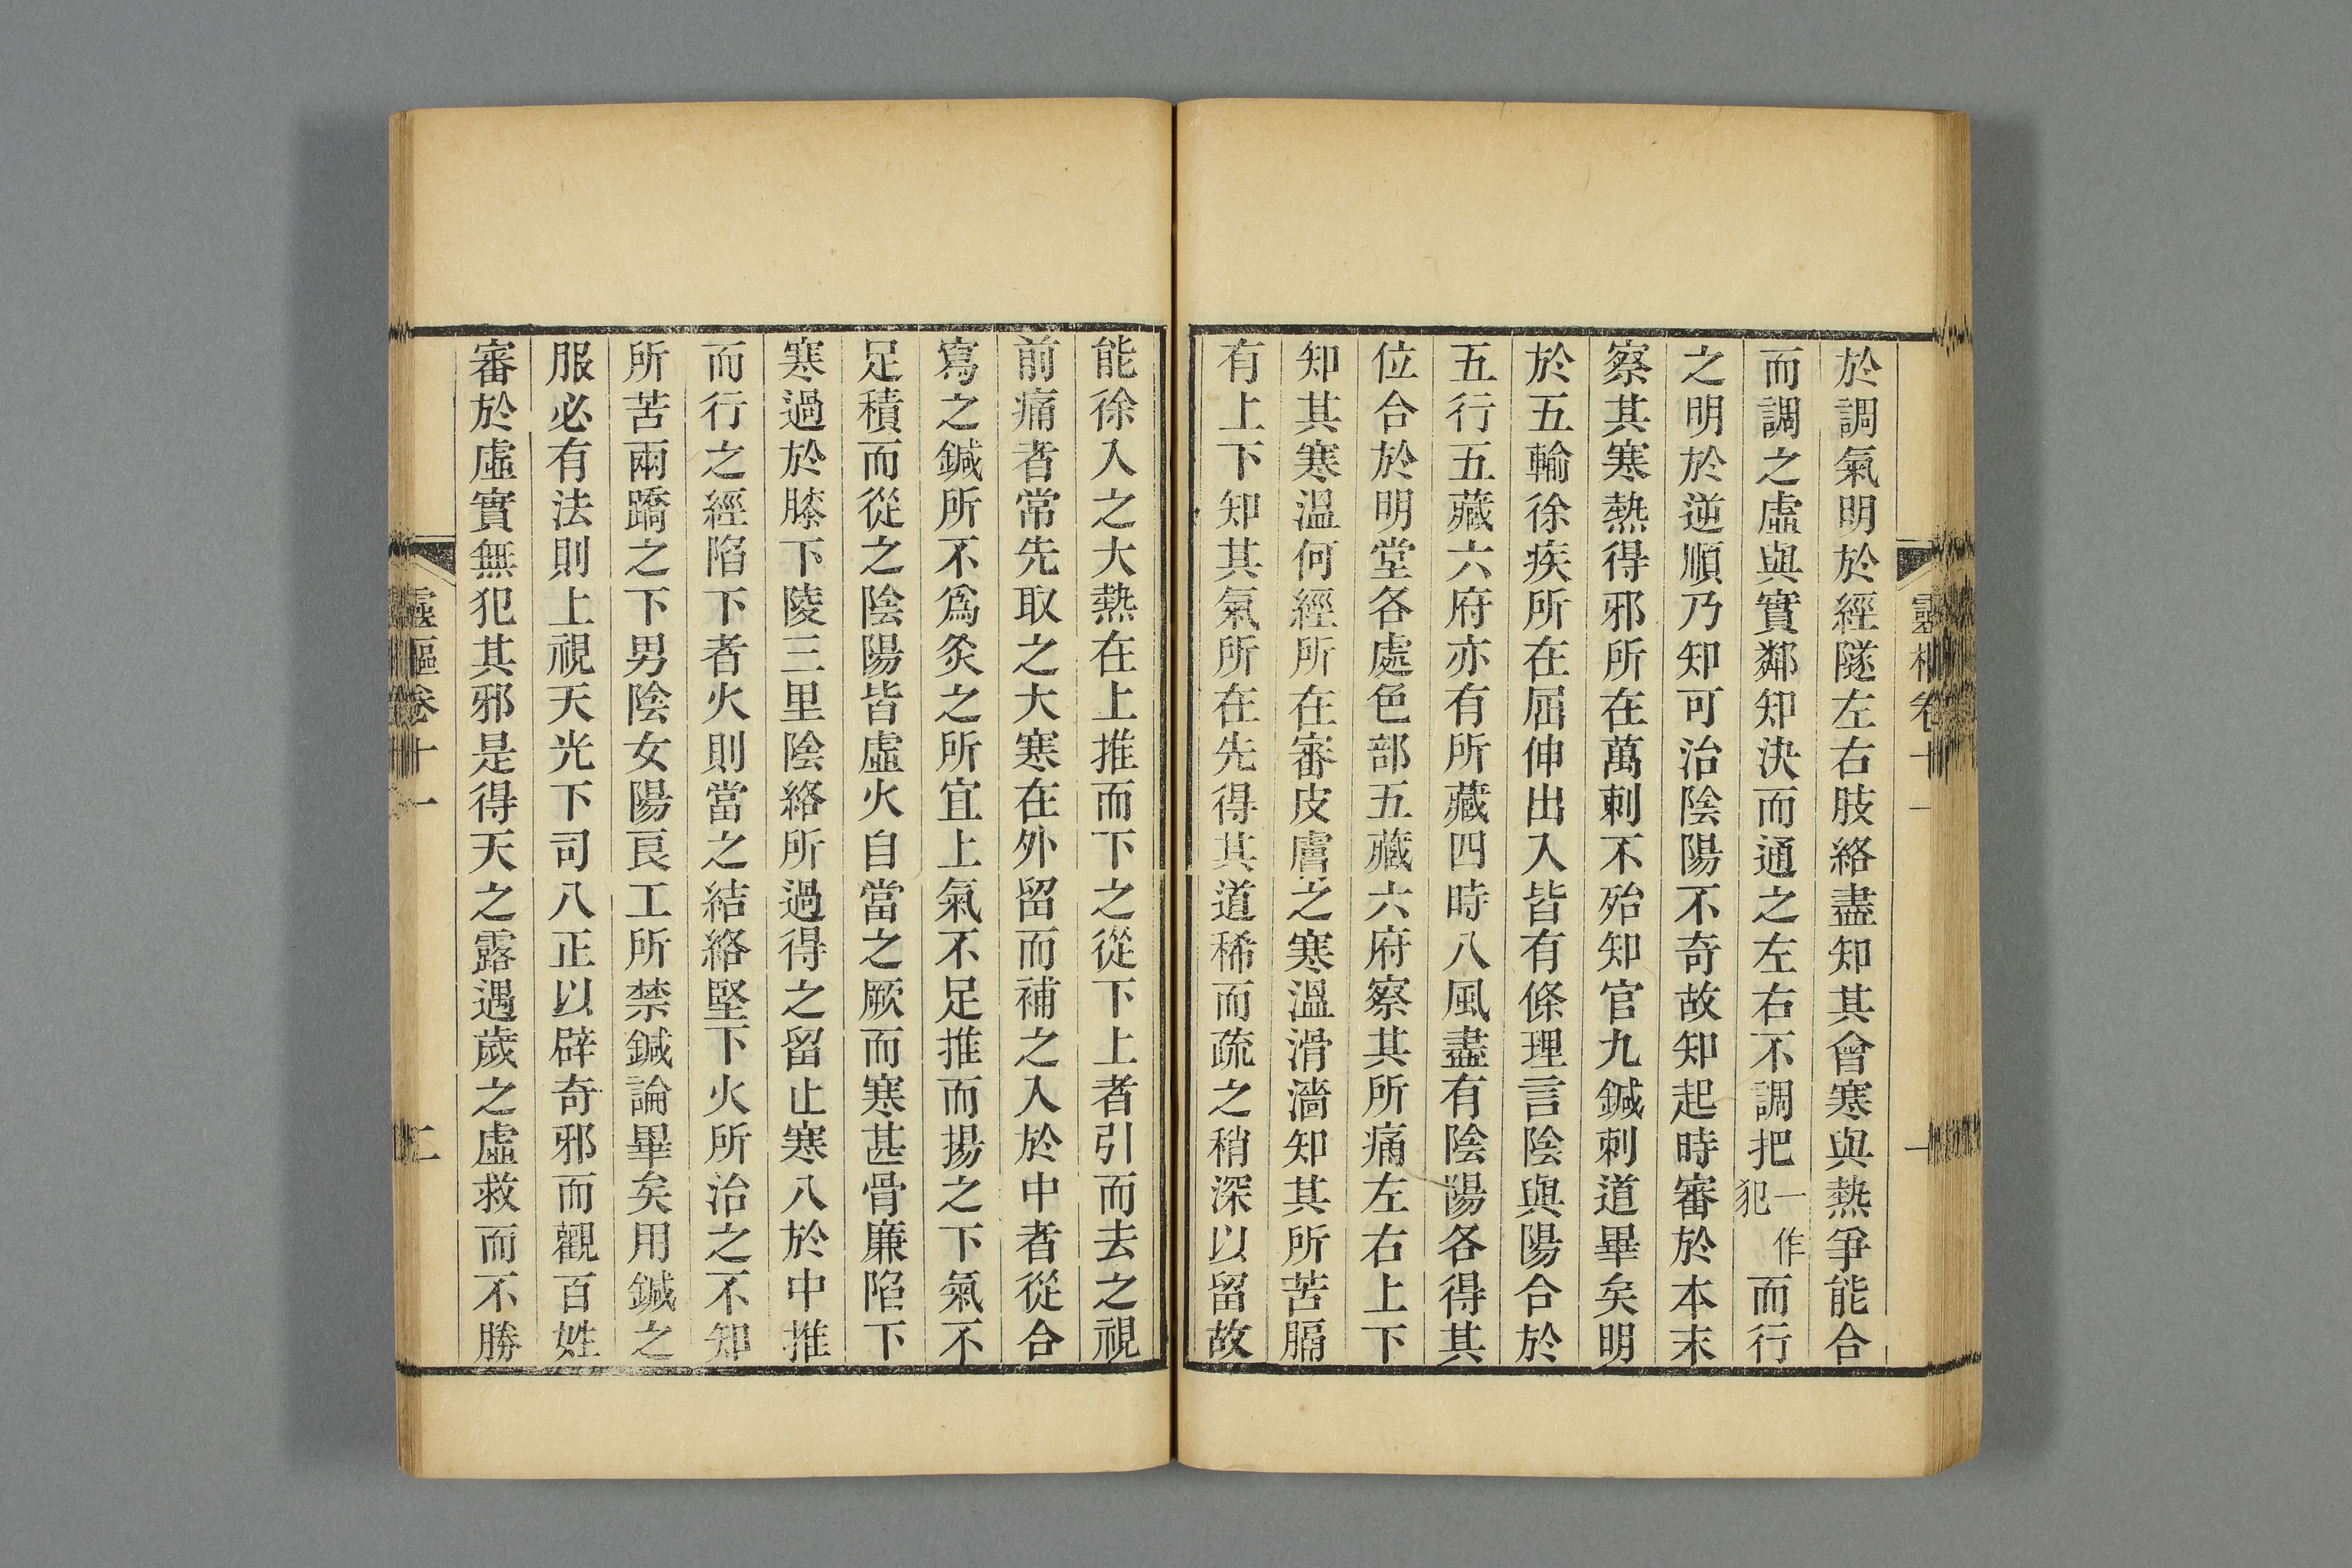 於調氣明於經隧左右肢絡盡知其會寒與熱爭能合
而調之虛與實鄰知決而通之左右不調把一作犯而行
之明於逆順乃知可治陰陽不奇故知起時審於本末
察其寒熱得邪所在萬刺不殆知官九鍼刺道畢矣明
於五輸徐疾所在屈伸出入皆有條理言陰與陽合於
五行五藏六府亦有所藏四時八風盡有陰陽各得其
位合於明堂各處色部五藏六府察其所痛左右上下
知其寒溫何經所在審皮膚之寒溫滑濇知其所苦膈
有上下知其氣所在先得其道稀而疏之稍深以留故
能徐入之大熱在上推而下之從下上者引而去之視
前痛者常先取之大寒在外留而補之入於中者從合
寫之鍼所不爲灸之所宜上氣不足推而揚之下氣不
足積而從之陰陽皆虛火自當之厥而寒甚骨廉陷下
寒過於膝下陵三里陰絡所過得之留止寒入於中推
而行之經陷下者火則當之結絡堅下火所治之不知
所苦兩蹻之下男陰女陽良工所禁鍼論畢矣用鍼之
服必有法則上視天光下司八正以辟奇邪而觀百姓
審於虛實無犯其邪是得天之露遇歲之虛救而不勝
靈樞卷十一
二